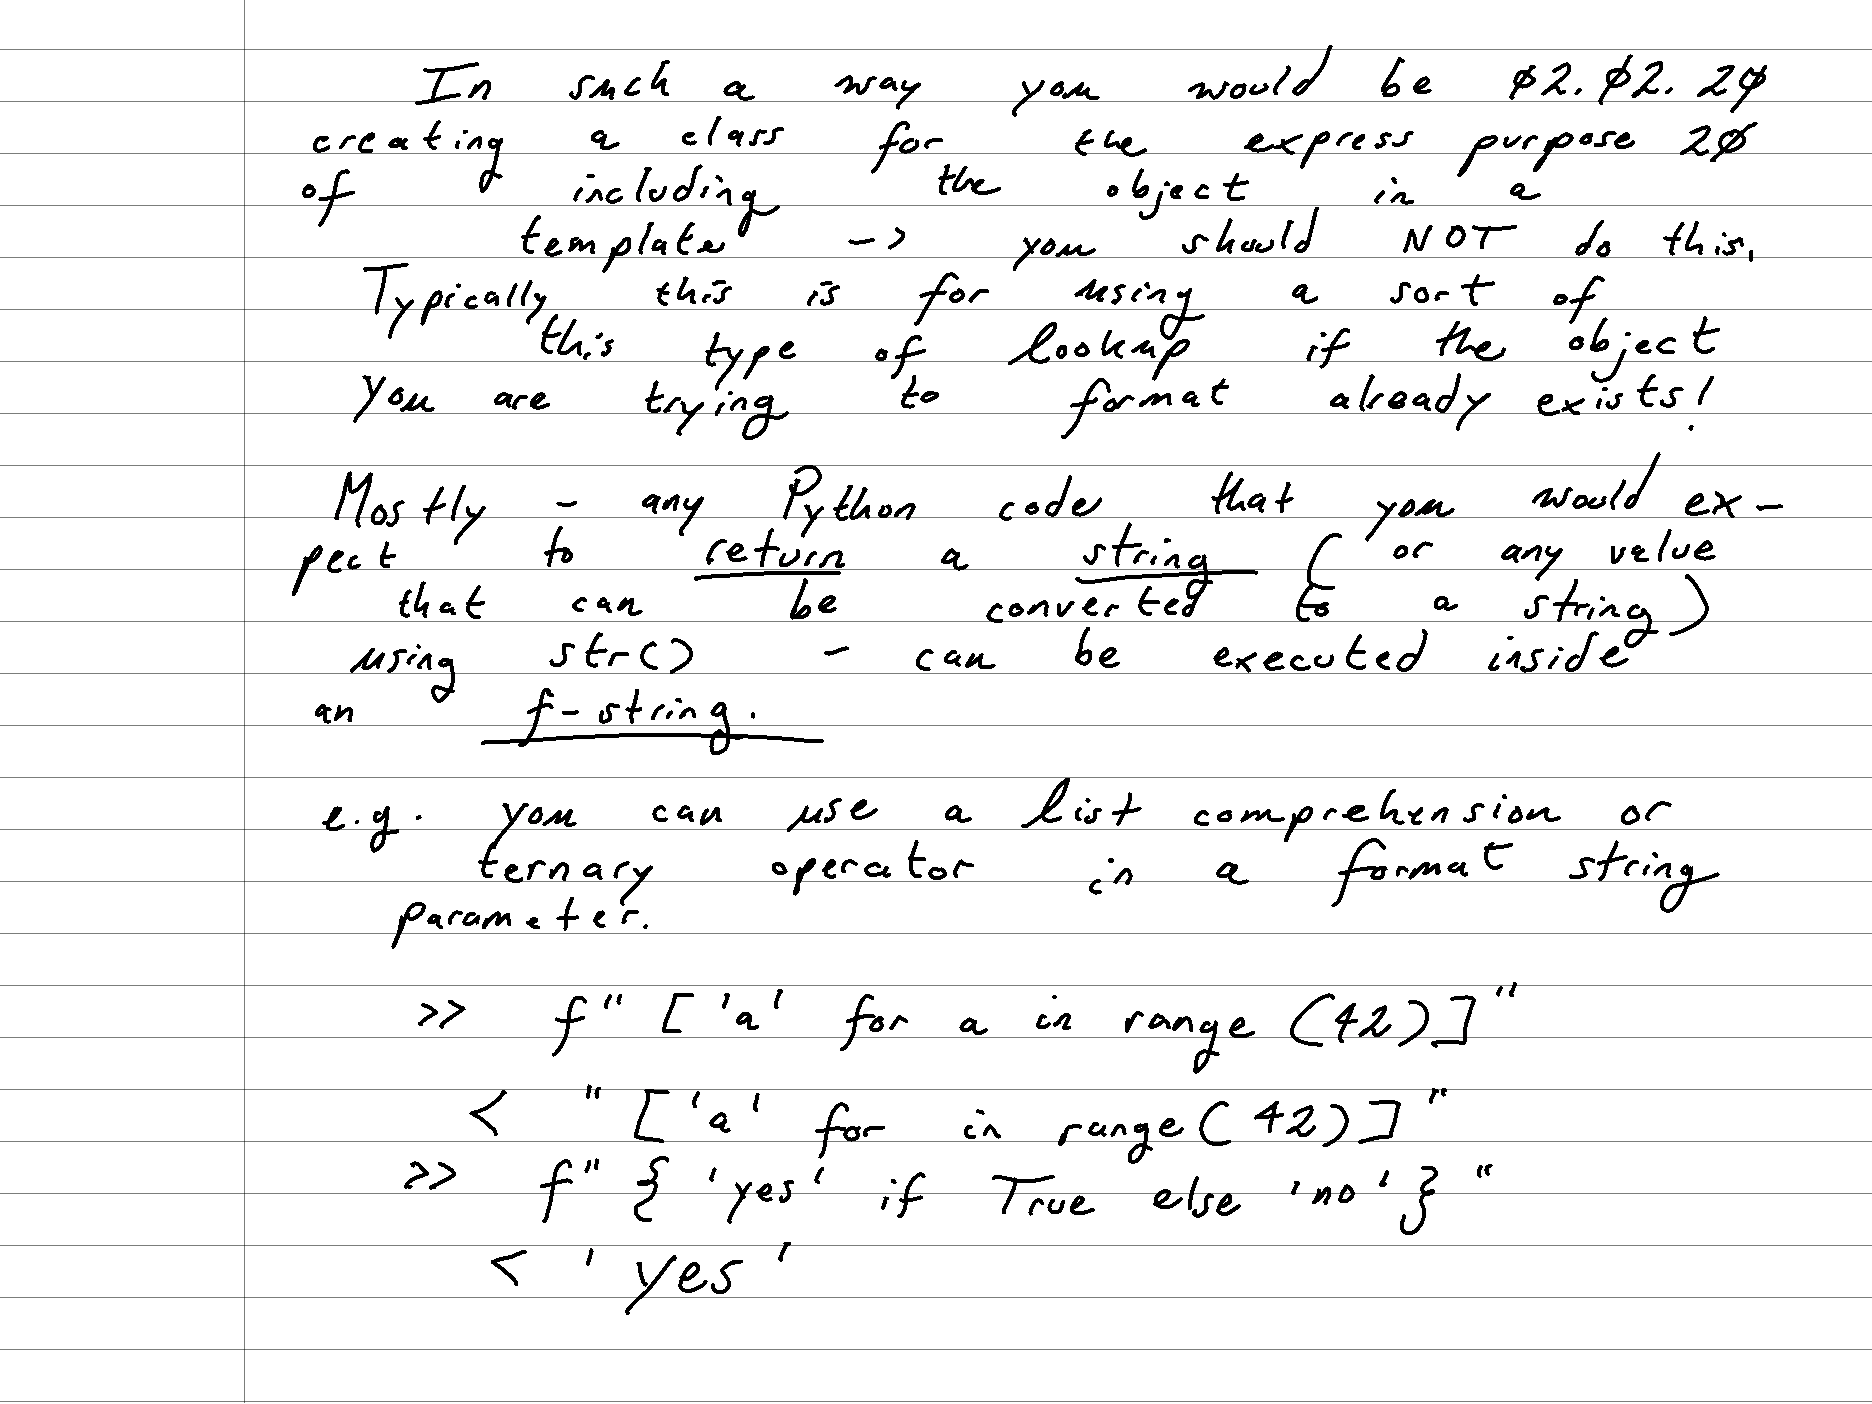 In such a way you would be 02.02.20
creating a class for the express purpose 20
of including the object in a
template -> you should NOT do this.
Typically this is for using a sort of
this type of lookup if the object
you are trying to format already exists!
Mostly - any Python code that you would ex-
pect to return a string ( or any value
that can be converted to a string)
using str() - can be executed inside
an f-string.
e.g. you can use a list comprehension or
ternary operator in a format string
parameter.
>> f" ['a' for a in range (42)]"
< " ['a' for in range( 42)]"
>> f" { 'yes' if True else 'no' } "
< 'yes'